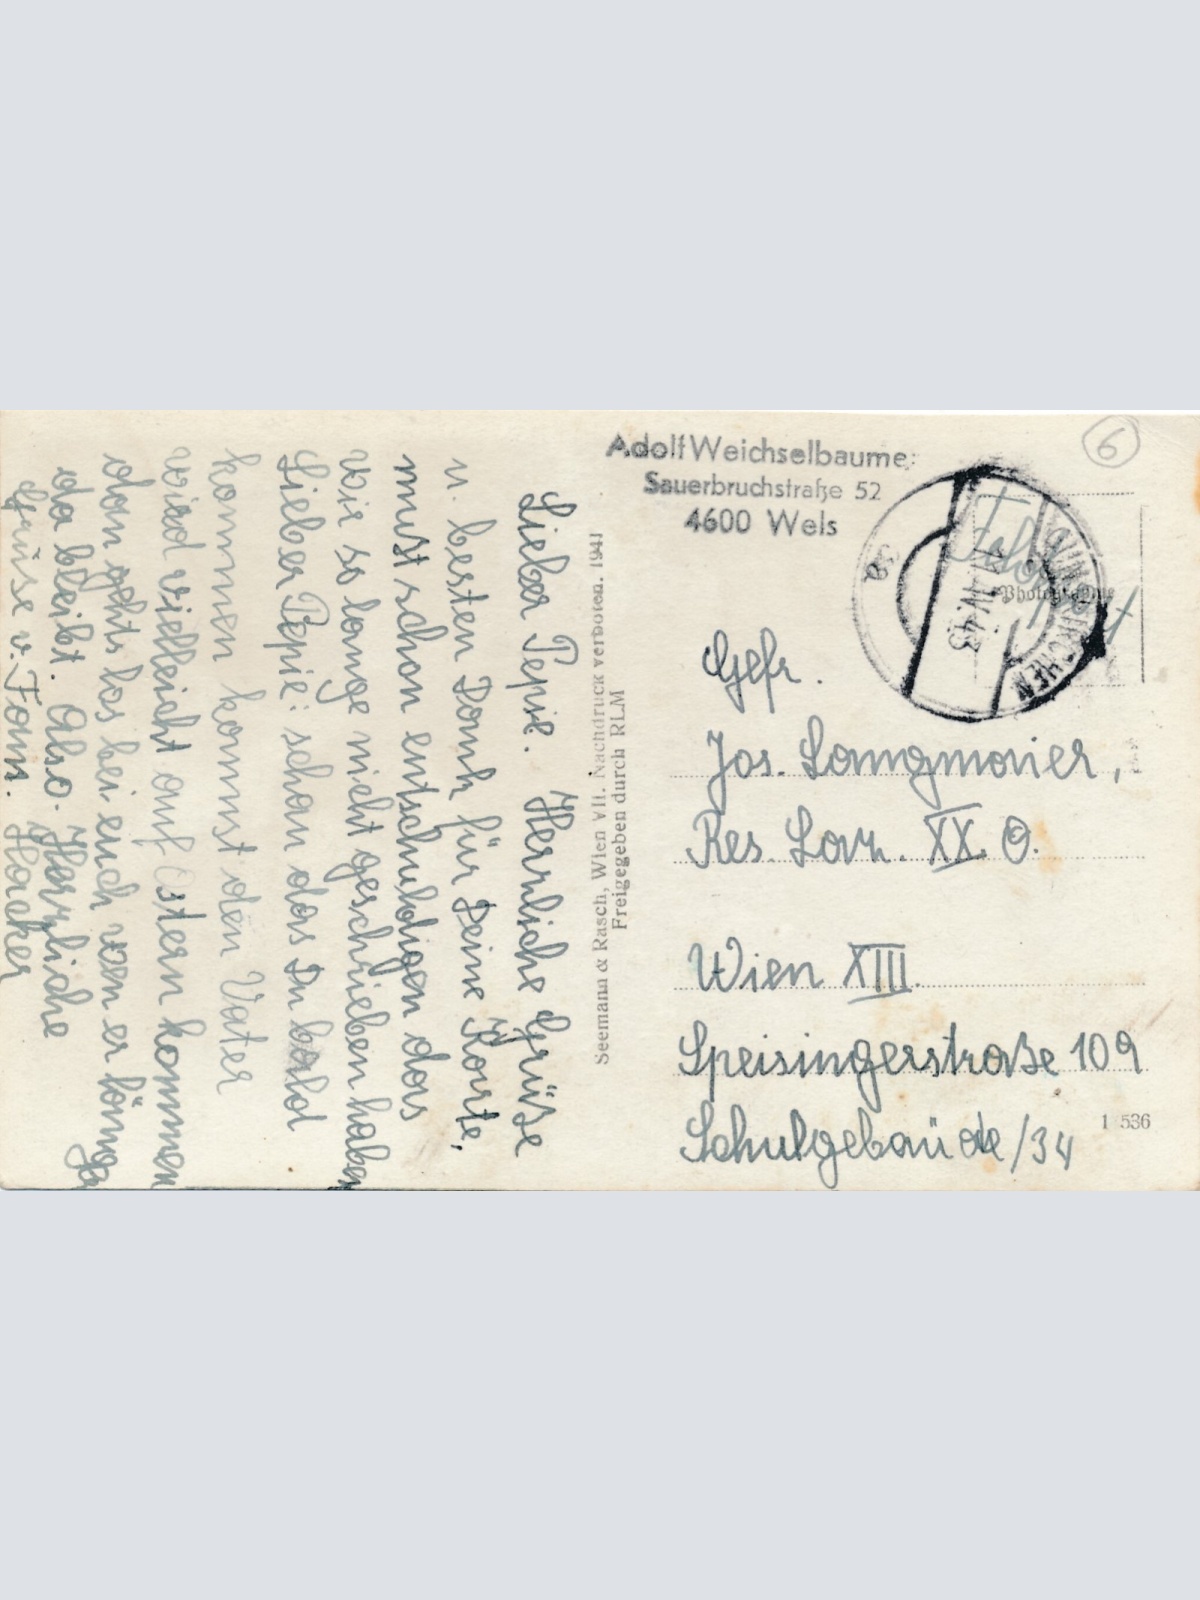 Lieber Pepie. Herzliche Grüße
u. besten Dank für Deine Karte,
must schon entschuldigen das
wir so lange nicht geschrieben haben
Lieber Pepie: schau das Du bald
kommen kannst den Vater
wird vielleicht auf Ostern kommen
dan gehts los bei euch wen er
da bleibt. Also. Herzliche
Grüse v. Fam.
Seemann & Rasch, Wien VII. Nachdruck verboten. 1941
Freigegeben durch RLM
Adolf Weichselbaumer
Sauerbruchstraße 52
4600 Wels
6
IV.43
Photographie
Gefr.
Jos. Langmaier,
Res. Laz. XX O.
Wien XIII.
Speisingerstraße 109
Schulgebäude /34
1 536